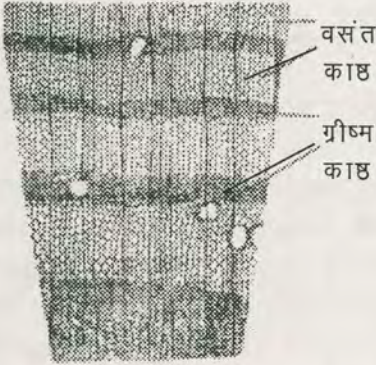 वसंत
काष्ठ
ग्रीष्म
काष्ठ